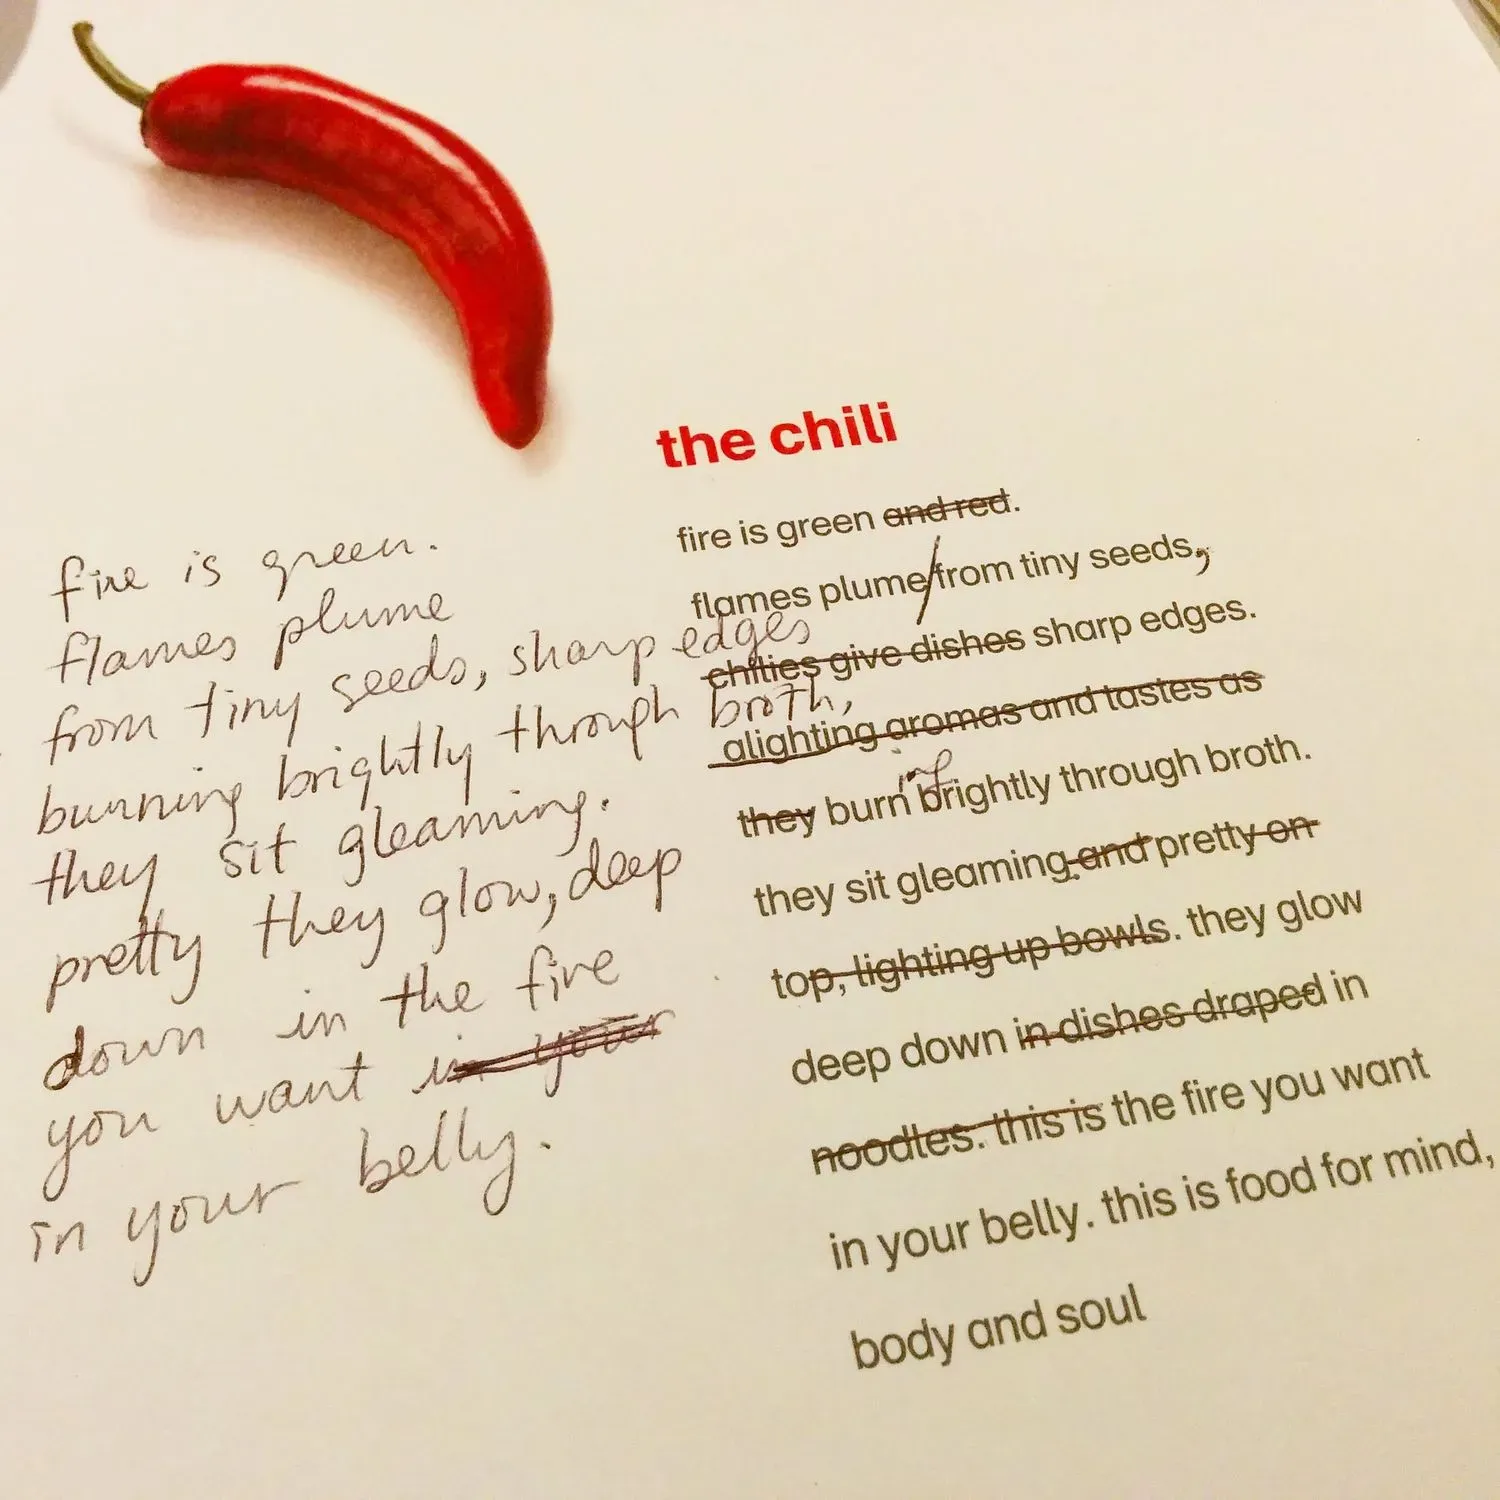 the chili
fire is green and red.
flames plume/from tiny seeds,
chillies give dishes sharp edges.
alighting aromas and tastes as
they burning brightly through broth.
they sit gleaming. and pretty on
top, lighting up bowls. they glow
deep down in dishes draped in
noodles. this is the fire you want
in your belly. this is food for mind,
body and soul
fire is green.
flames plume
from tiny seeds, sharp edges
burning brightly through broth,
they sit gleaming.
pretty they glow, deep
down in the fire
you want in your
in your belly.